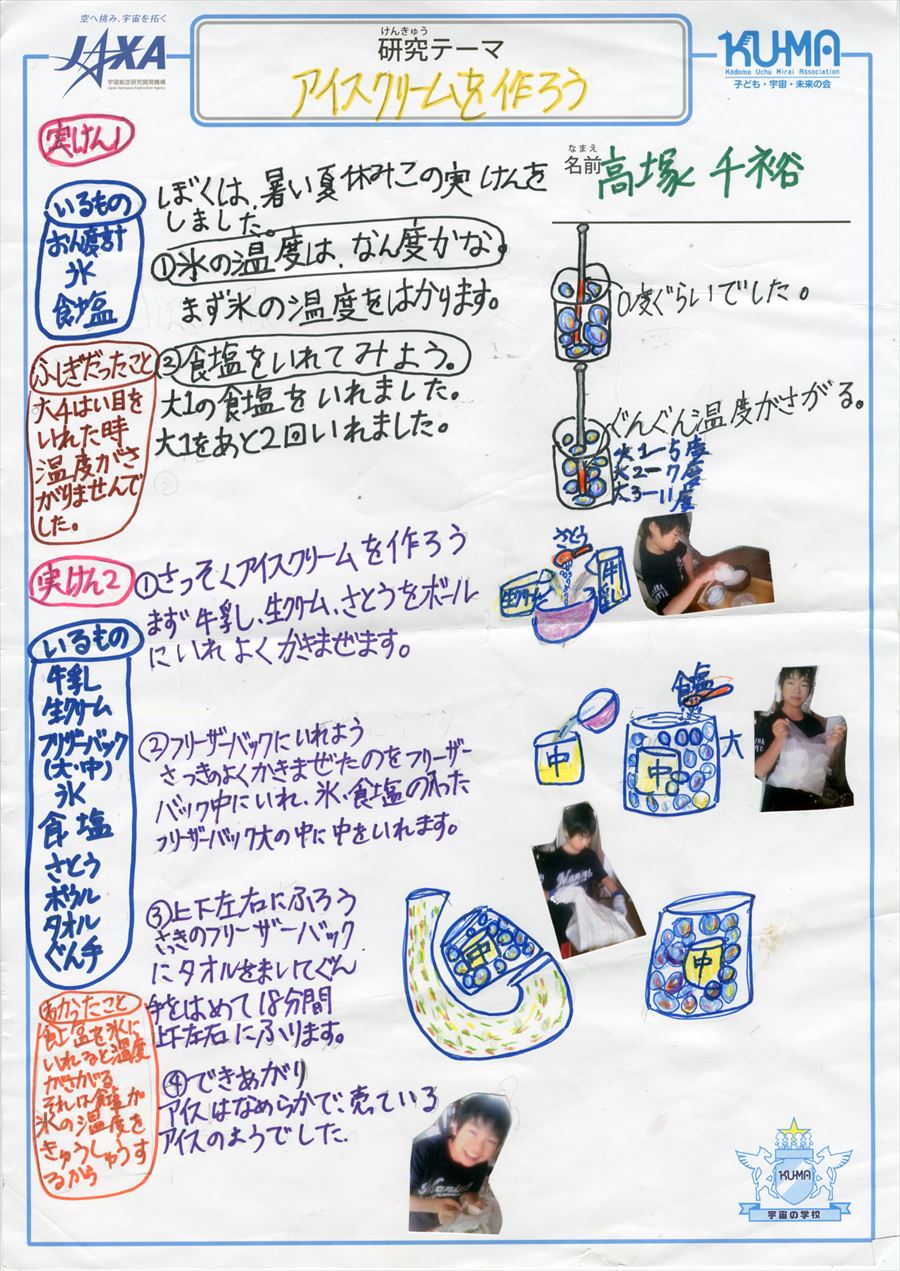 空へ挑み、宇宙を拓く
JAXA
宇宙航空研究開発機構
Japan Aerospace Exploration Agency
けんきゅう
研究テーマ
アイスクリームを作ろう
KU-MA
Kodomo Uchu Mirai Association
子ども・宇宙・未来の会
なまえ
名前 高塚 千裕
実けん1
いるもの
おん度計
氷
食塩
ぼくは、暑い夏休みこの実けんを
しました。
①氷の温度は、なん度かな。
まず氷の温度をはかります。
0度ぐらいでした。
②食塩をいれてみよう。
大1の食塩をいれました。
大1をあと2回いれました。
ぐんぐん温度がさがる。
大1-5度
大2-7度
大3-11度
ふしぎだったこと
大4はい目を
いれた時
温度がさ
がりませんで
した。
実けん2
いるもの
牛乳
生クリーム
フリザーバック
(大・中)
氷
食塩
さとう
ボウル
タオル
ぐん手
①さっそくアイスクリームを作ろう
まず牛乳、生クリーム、さとうをボール
にいれよくかきまぜます。
さとう
生クリーム
牛乳
②フリーザーバックにいれよう
さっきのよくかきまぜたのをフリーザー
バック中にいれ、氷、食塩の入った
フリーザーバック大の中に中をいれます。
中
食塩
中
大
③上下左右にふろう
さっきのフリーザーバック
にタオルをまいてぐん
手をはめて18分間
上下左右にふります。
中
中
④できあがり
アイスはなめらかで、売っている
アイスのようでした。
わかったこと
食塩を氷に
いれると温度
がさがる
それは食塩が
氷の温度を
きゅうしゅうす
るから
KU-MA
宇宙の学校